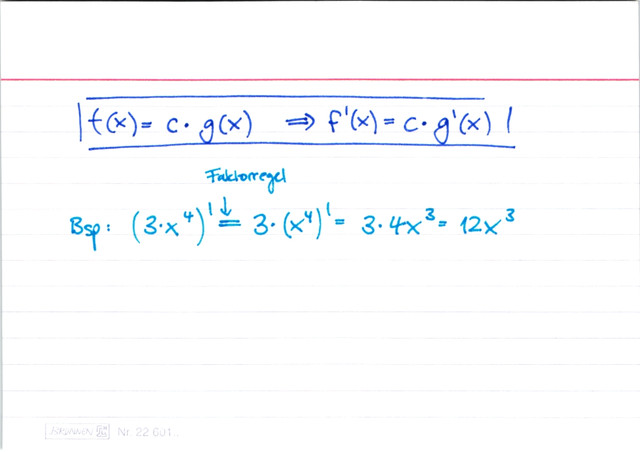 f(x) = c · g(x) ⇒ f'(x) = c · g'(x)
Faktorregel
↓
Bsp: (3·x⁴)' = 3·(x⁴)' = 3·4x³ = 12x³
Nr. 22 601